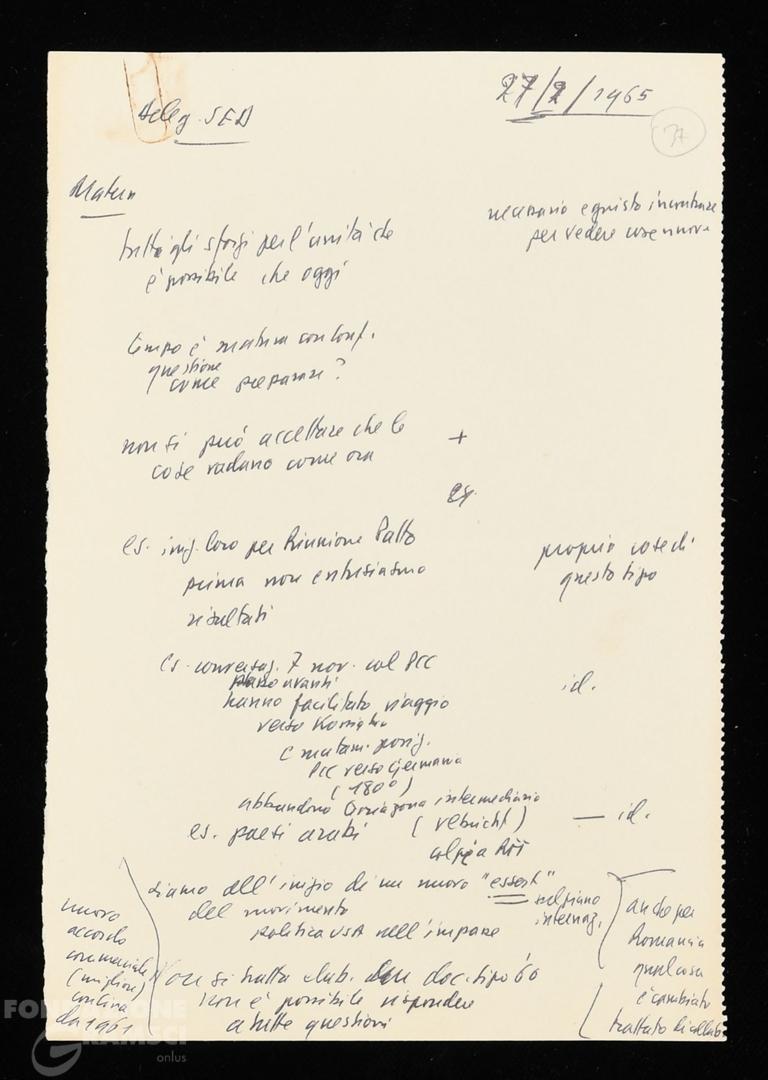 Deleg. SED
27/2/1965
Matern
necessario e giusto incontrarsi
per vedere cose nuove
tutti gli sforzi per l'unità che
è possibile che oggi
tempo è maturo con conf.
questione
come preparare?
non si può accettare che le
cose vadano come ora
+
es. ing. loro per Riunione Patto
prima non entusiasmo
risultati
proprio cose di
questo tipo
es. conversaz. 7 nov. col PCC
passo avanti
hanno facilitato viaggio
verso
id.
PCC verso Germania
(180°)
abbandono zona intermediaria
es. paesi arabi (Ulbricht)
— id.
colpo a RFT
siamo all'inizio di un nuovo "essert"
del movimento
sul piano
internaz.
politica USA nell'impasse
anche per
Romania
qualcosa
è cambiato
trattato di collab.
nuovo
accordo
commerciale
(migliore)
con Cina
da 1961
non si tratta elab. un doc. tipo '60
non è possibile rispondere
a tutte questioni
FONDAZIONE
GRAMSCI
onlus